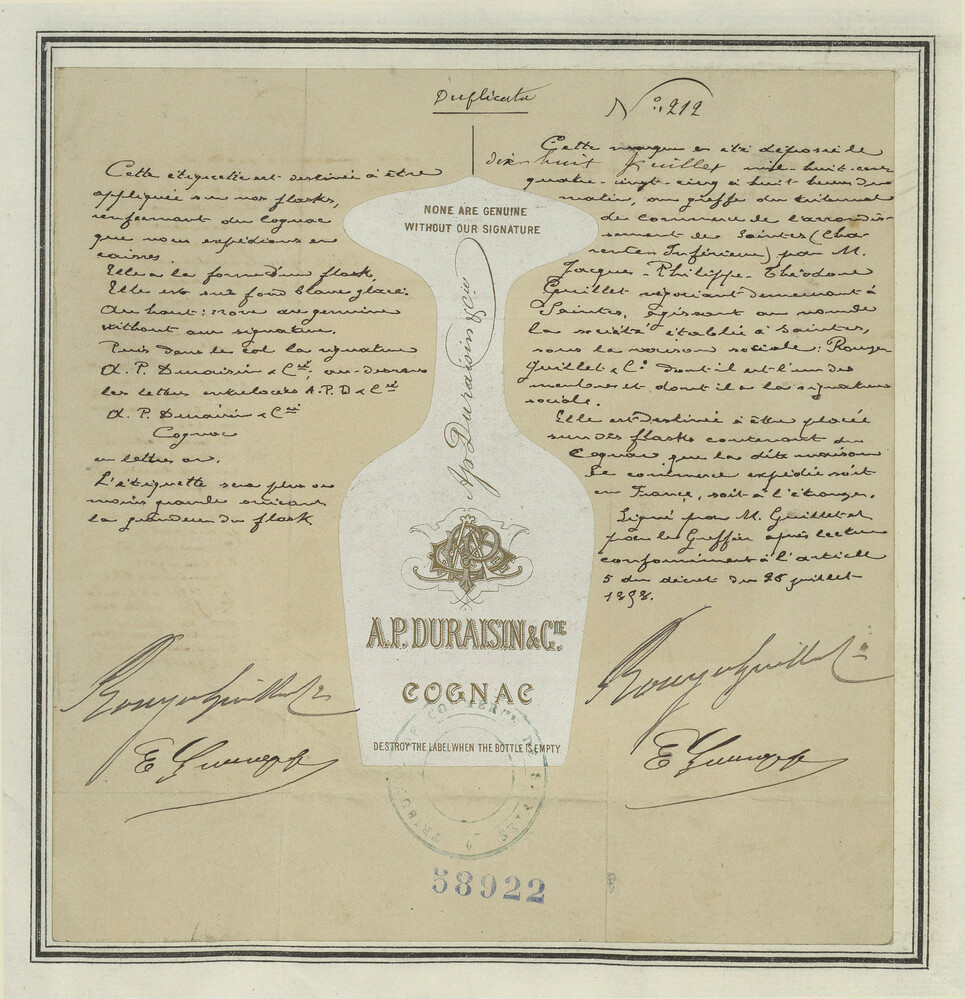 Duplicata
N° 212
Cette étiquette est destinée à être
appliquée sur nos flasks,
renfermant du Cognac
que nous expédions en
caisses.
Elle a la forme d'un flask.
Elle est sur fond blanc glacé.
Au haut: none are genuine
without our signature.
Puis dans le col la signature
A. P. Duraisin & Cie, au-dessous
les lettres entrelacées A. P. D & Cie
A. P. Duraisin & Cie
Cognac
en lettres or.
L'étiquette sera plus ou
moins grande suivant
la grandeur du flask
NONE ARE GENUINE
WITHOUT OUR SIGNATURE
Ap Duraisin & Cie
A.P. DURAISIN & CIE
COGNAC
DESTROY THE LABEL WHEN THE BOTTLE IS EMPTY
Cette marque a été déposée le
dix huit Juillet mil-huit-cent
quatre-vingt-cinq à huit heures du
matin, au greffe du tribunal
de commerce de l'arrondis-
sement de Saintes (Cha-
rente Inférieure) par M.
Jacques-Philippe-Théodore
Guillet négociant demeurant à
Saintes, agissant au nom de
la société établie à Saintes,
sous la raison sociale: Rouyer
Guillet & Co dont il est l'un des
membres et dont il a la signature
sociale.
Elle est destinée à être placée
sur des flasks contenant du
Cognac que la dite maison
de commerce expédie soit
en France, soit à l'étranger.
Signé par M. Guillet et
par le Greffier après lecture
conformément à l'article
5 du décret du 26 juillet
1858.
Rouyer Guillet & Co
Rouyer Guillet & Co
TRIBUNAL DE COMMERCE DE SAINTES
58922